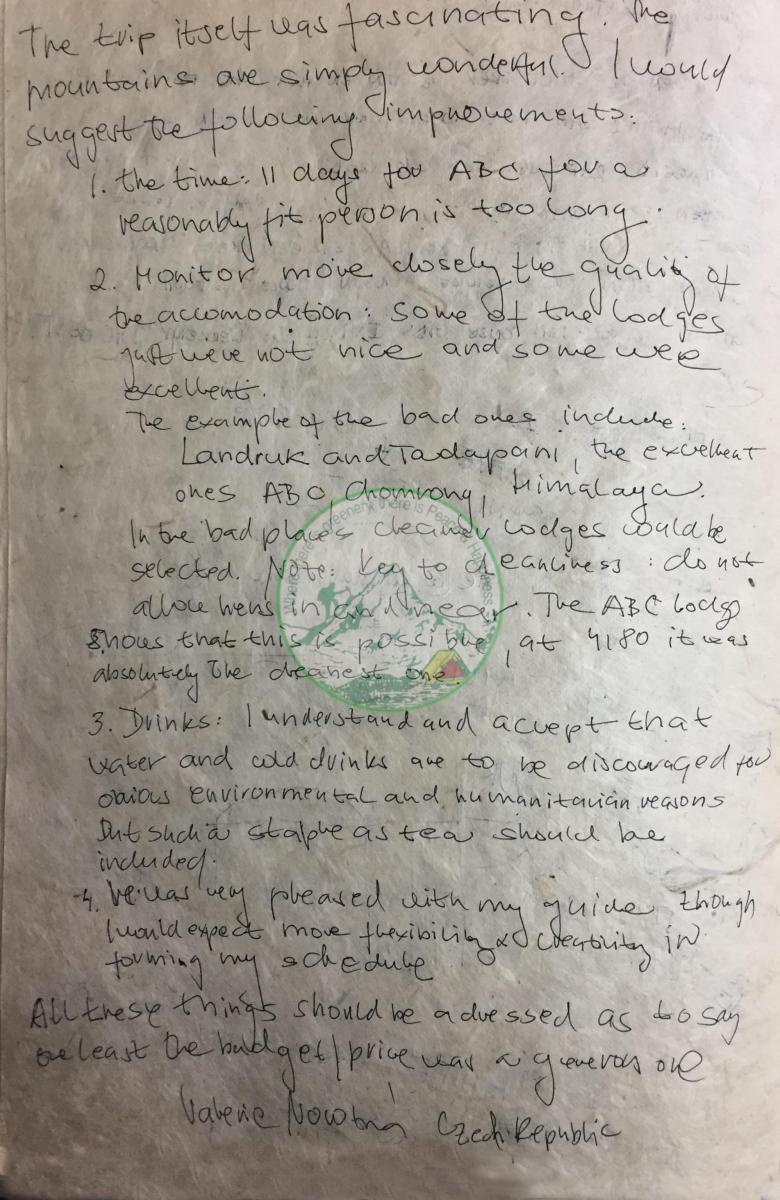 The trip itself was fascinating. The
mountains are simply wonderful. I would
suggest the following improvements:
1. the time: 11 days for ABC for a
reasonably fit person is too long.
2. Monitor more closely the quality of
the accomodation: some of the lodges
just were not nice and some wee
excellent.
The example of the bad ones include:
Landruk and Tadapani, the excellent
ones ABC, Chomrong, Himalaya.
In the bad places cleaner lodges could be
selected. Note: key to cleanliness: do not
allow hens in and near. The ABC lodge
shows that this is possible, at 4180 it was
absolutely the cleanest one.
3. Drinks: I understand and accept that
water and cold drinks are to be discouraged for
obious environmental and humanitarian reasons
but such a stalpe as tea should be
included.
4. was very pleased with my guide, though
I would expect more flexibility & creativity in
forming my schedule
All these things should be adressed as to say
the least the budget/price was a generous one
Valerie Czech Republic
there is Peace